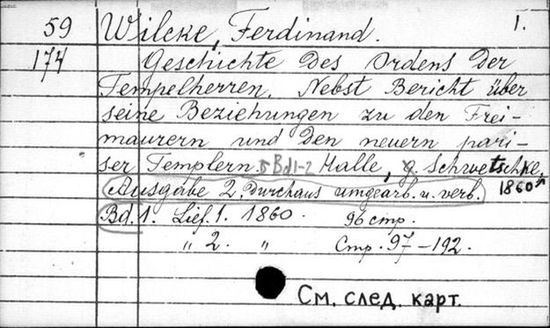 59 Wilcke, Ferdinand. 1.
174 Geschichte des Ordens der
Tempelherren. Nebst Bericht über
seine Beziehungen zu den Frei-
maurern und den neuern pari-
ser Templern. Bd 1-2 Halle, G. Schwetschke,
Ausgabe 2, durchaus umgearb. u. verb. 1860
Bd. 1. Lief. 1. 1860. 96 стр.
" 2. " Стр. 97-192.
См. след. карт.